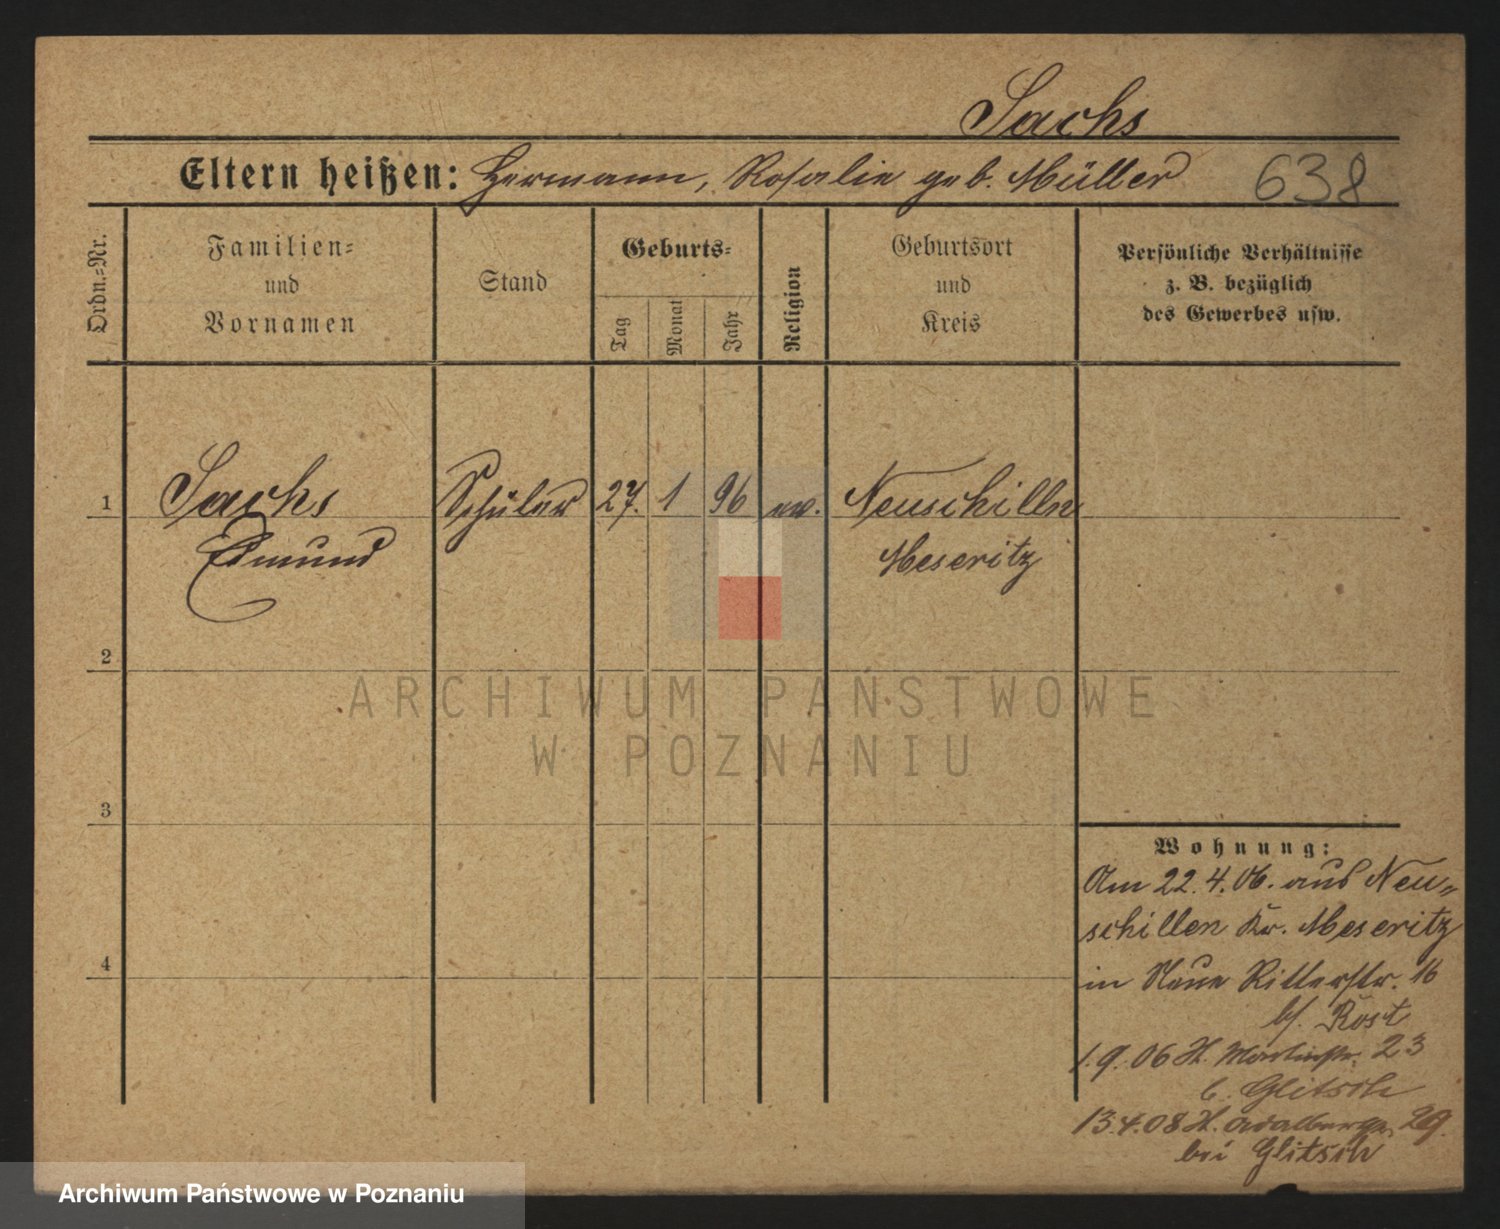 Sachs
Eltern heißen: Hermann, Rosalie geb. Müller 638
Ordn.=Nr.
Familien=
und
Vornamen
Stand
Geburts=
Tag
Monat
Jahr
Religion
Geburtsort
und
Kreis
Persönliche Verhältnisse
z. B. bezüglich
des Gewerbes usw.
1 Sachs Schüler 27. 1 96 ev. Neuschillen
Edmund Meseritz
2
3
4
Wohnung:
Am 22.4.06. aus Neu=
schillen Kr. Meseritz
in Neue Ritterstr. 16
bf. Rost
1.9.06 St. Martinstr. 23
b. Glitsch
13.4.08 St. Adalbertstr. 29.
bei Glitsch
ARCHIWUM PAŃSTWOWE
W POZNANIU
Archiwum Państwowe w Poznaniu